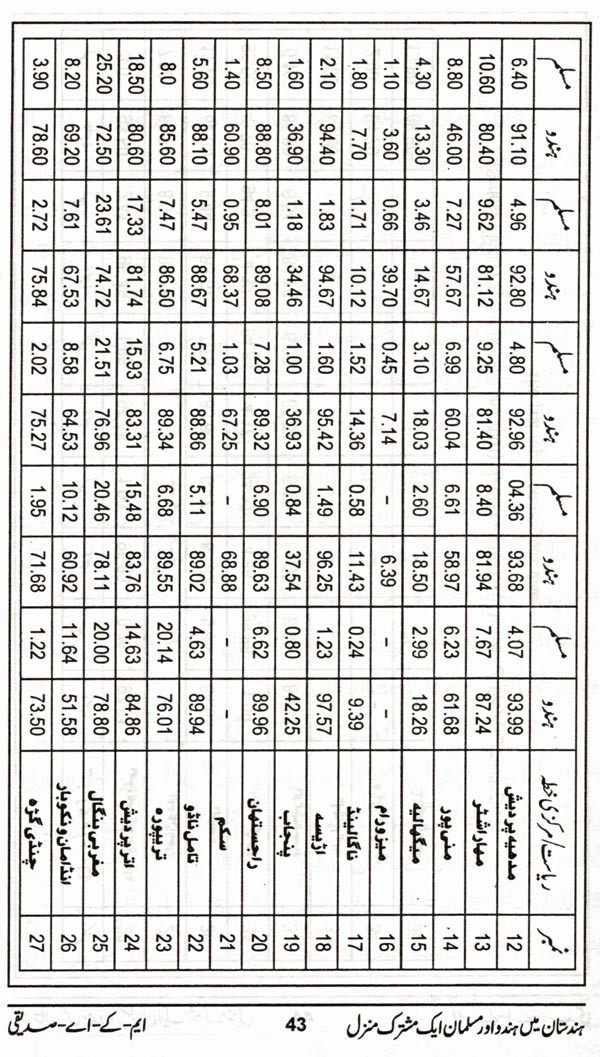 نمبر ریاست/مرکزی خطہ ہندو مسلم ہندو مسلم ہندو مسلم ہندو مسلم ہندو مسلم
12 مدھیہ پردیش 93.99 4.07 93.68 04.36 92.96 4.80 92.80 4.96 91.10 6.40
13 مہاراشٹر 87.24 7.67 81.94 8.40 81.40 9.25 81.12 9.62 80.40 10.60
14 منی پور 61.68 6.23 58.97 6.61 60.04 6.99 57.67 7.27 46.00 8.80
15 میگھالیہ 18.26 2.99 18.50 2.60 18.03 3.10 14.67 3.46 13.30 4.30
16 میزورام - - 6.39 - 7.14 0.45 39.70 0.66 3.60 1.10
17 ناگالینڈ 9.39 0.24 11.43 0.58 14.36 1.52 10.12 1.71 7.70 1.80
18 اڑیسہ 97.57 1.23 96.25 1.49 95.42 1.60 94.67 1.83 94.40 2.10
19 پنجاب 42.25 0.80 37.54 0.84 36.93 1.00 34.46 1.18 36.90 1.60
20 راجستھان 89.96 6.62 89.63 6.90 89.32 7.28 89.08 8.01 88.80 8.50
21 سکم - - 68.88 - 67.25 1.03 68.37 0.95 60.90 1.40
22 تامل ناڈو 89.94 4.63 89.02 5.11 88.86 5.21 88.67 5.47 88.10 5.60
23 تریپورہ 76.01 20.14 89.55 6.68 89.34 6.75 86.50 7.47 85.60 8.0
24 اتر پردیش 84.86 14.63 83.76 15.48 83.31 15.93 81.74 17.33 80.60 18.50
25 مغربی بنگال 78.80 20.00 78.11 20.46 76.96 21.51 74.72 23.61 72.50 25.20
26 انڈامان و نکوبار 51.58 11.64 60.92 10.12 64.53 8.58 67.53 7.61 69.20 8.20
27 چنڈی گڑھ 73.50 1.22 71.68 1.95 75.27 2.02 75.84 2.72 78.60 3.90
ہندستان میں ہندو اور مسلمان ایک مشترک منزل 43 ایم-کے-اے-صدیقی